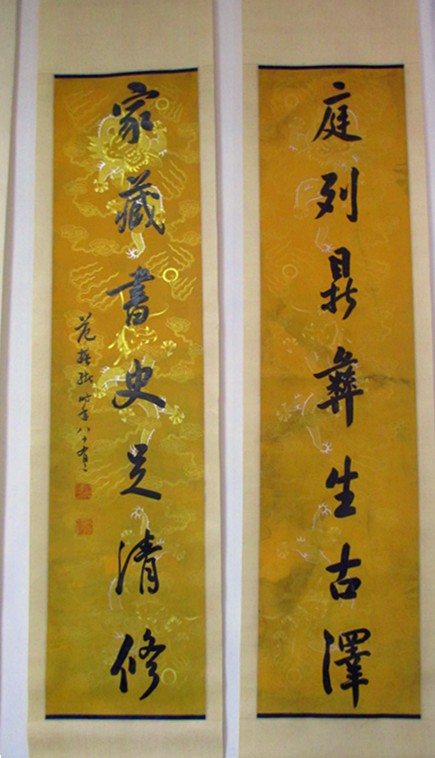 庭列鼎彝生古澤
家藏書史足清修
范
時年八十有二